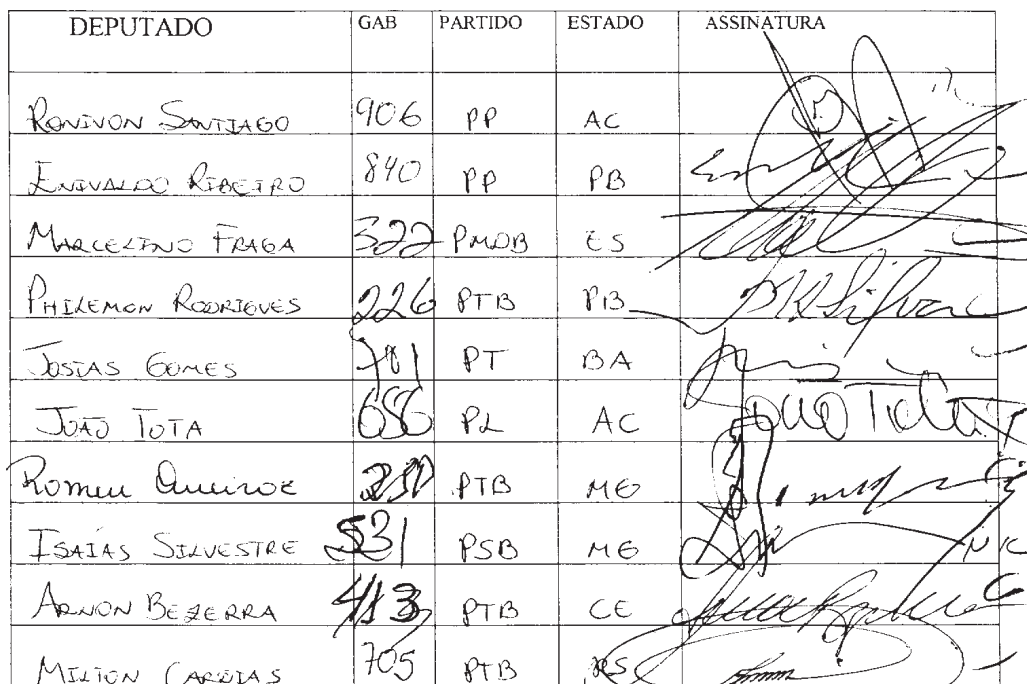 DEPUTADO GAB PARTIDO ESTADO ASSINATURA
RONIVON SANTIAGO 906 PP AC
ENIVALDO RIBEIRO 840 PP PB
MARCELINO FRAGA 322 PMDB ES
PHILEMON RODRIGUES 226 PTB PB
JOSIAS GOMES PT BA
JOÃO TOTA 656 PL AC João Tota
Romeu Queiroz 250 PTB MG
ISAÍAS SILVESTRE 531 PSB MG
ARNON BEZERRA 413 PTB CE
MILTON CARDIAS 705 PTB RS